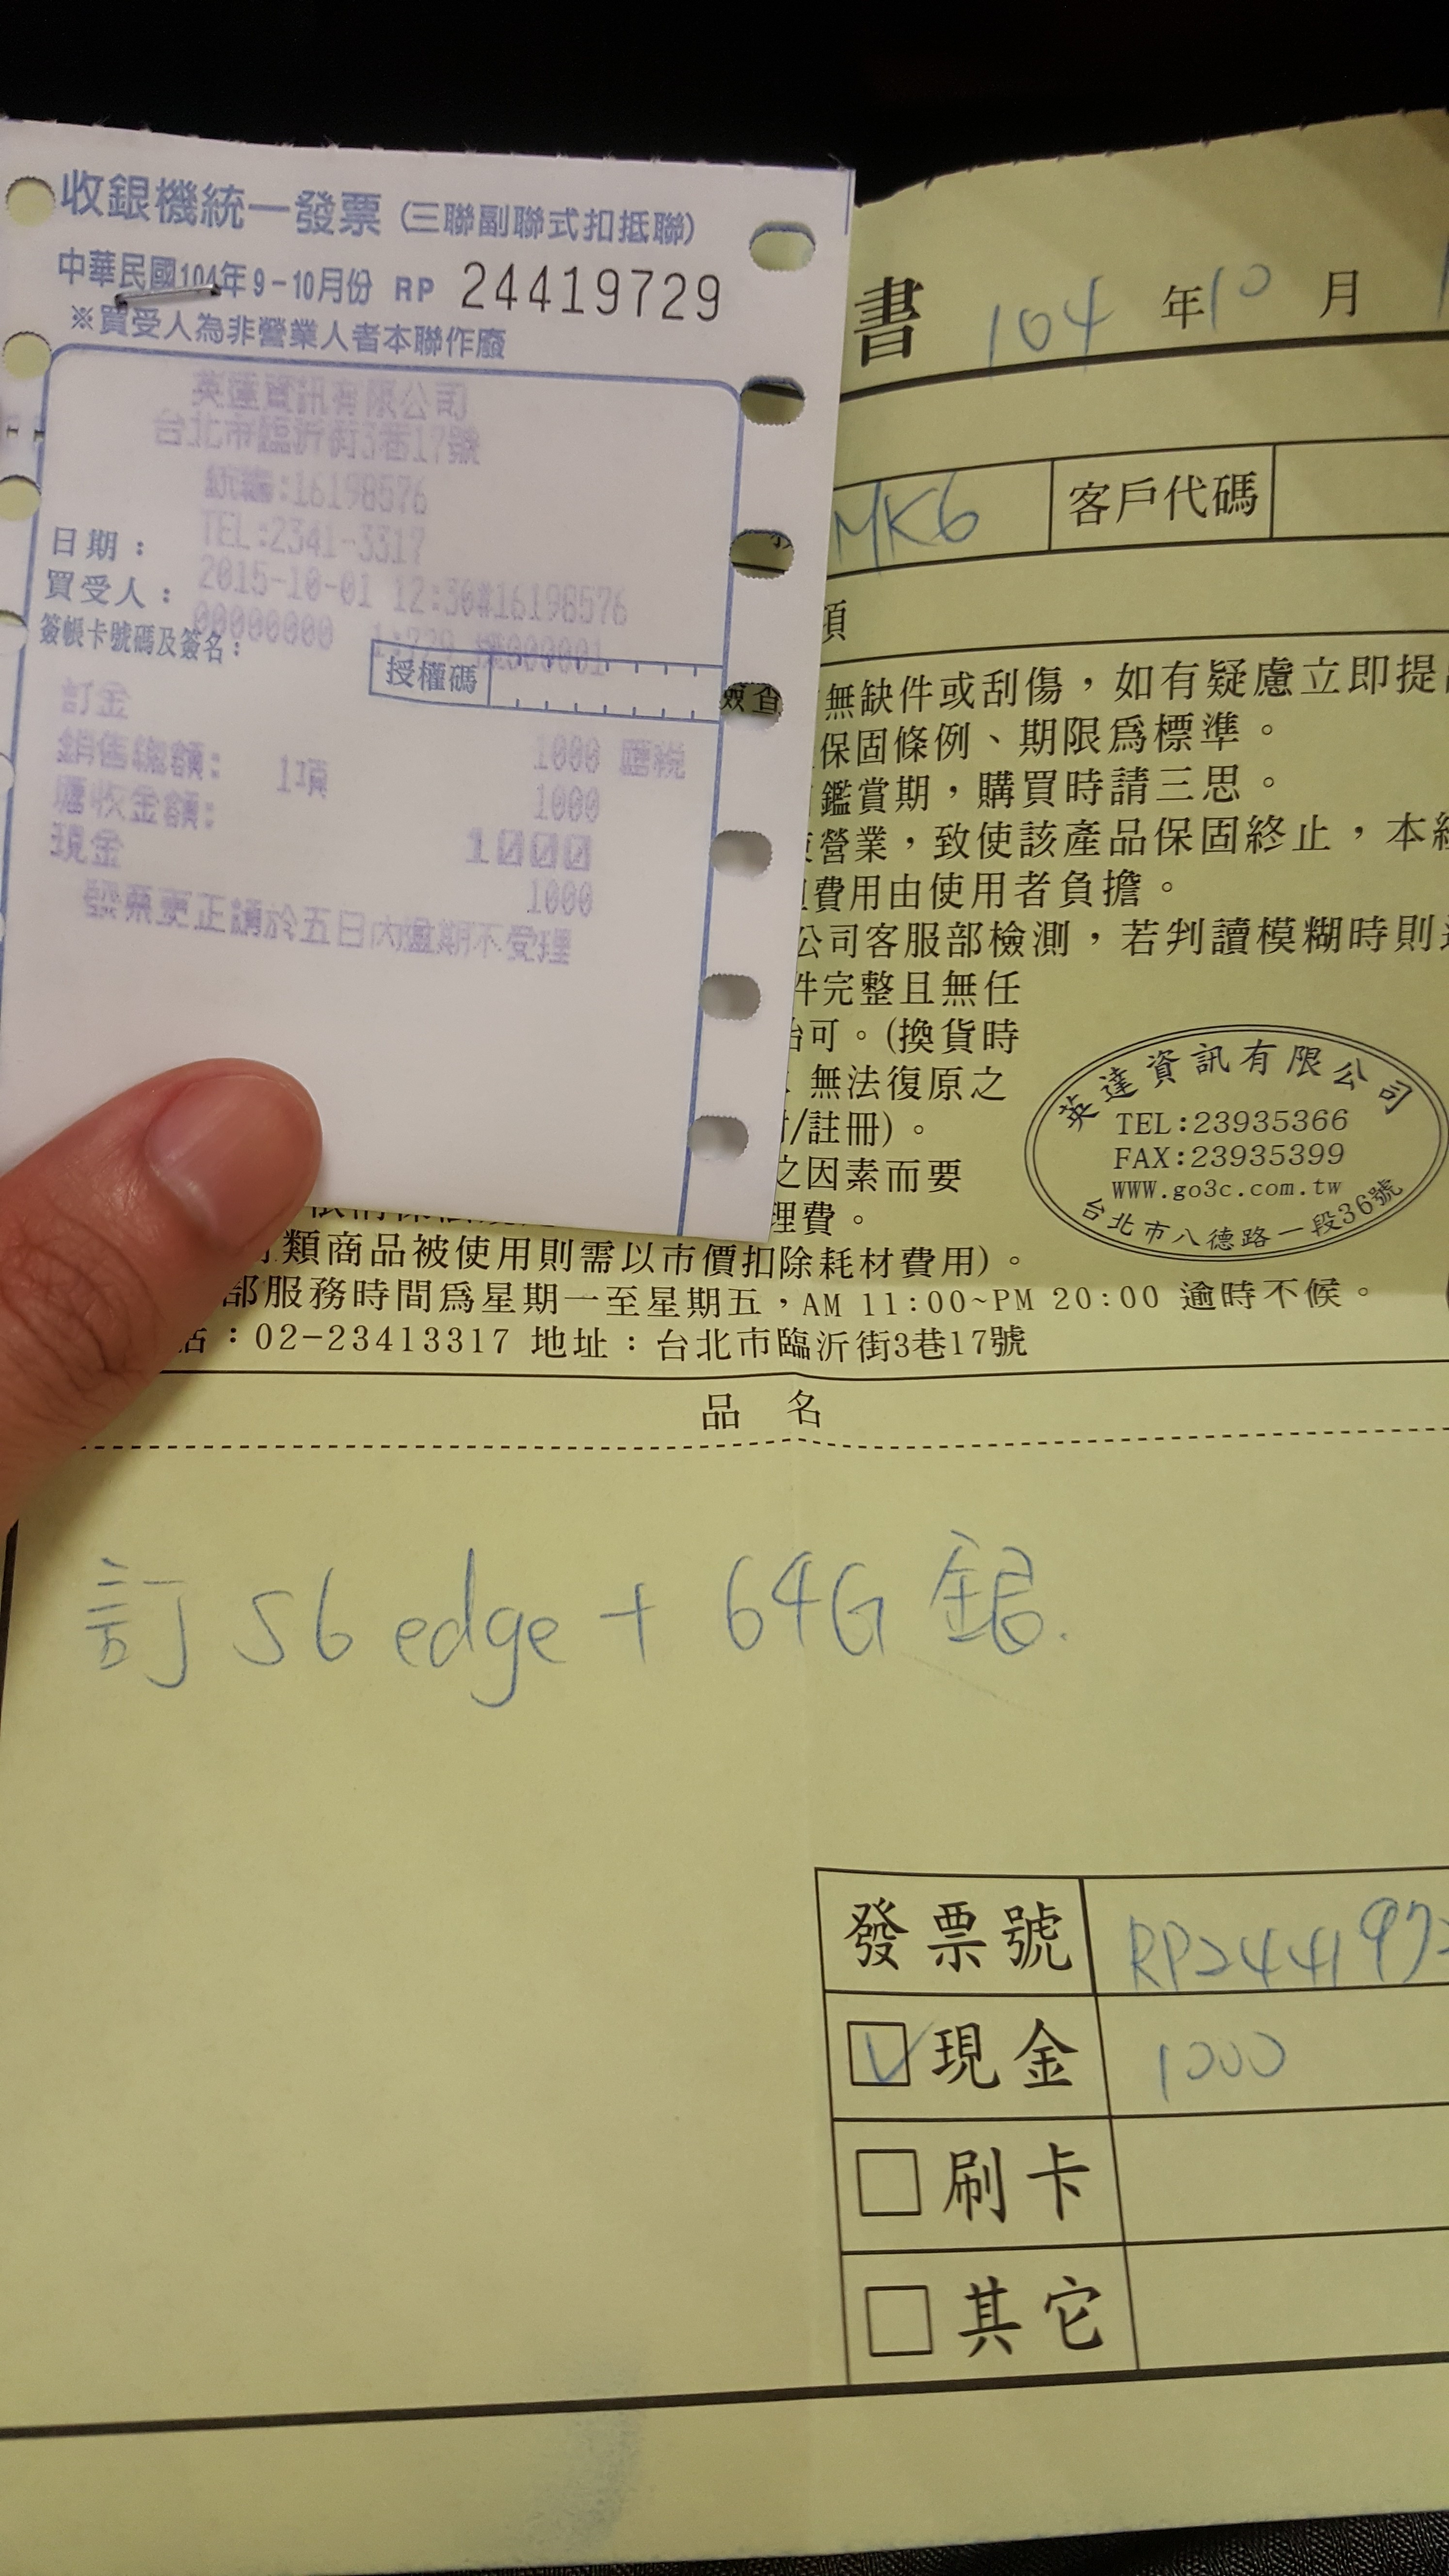 收銀機統一發票(三聯副聯式扣抵聯)
中華民國104年9-10月份 RP 24419729
※買受人為非營業人者本聯作廢
英達資訊有限公司
台北市臨沂街3巷17號
統編:16198576
TEL:2341-3317
日期:
2015-10-01 12:30#16198576
買受人:
00000000
簽帳卡號碼及簽名:
授權碼
訂金 1000 應稅
銷售總額: 1項 1000
應收金額: 1000
現金 1000
發票更正請於五日內逾期不受理
書 104 年 10 月 1
MK6 客戶代碼
項
無缺件或刮傷,如有疑慮立即提
保固條例、期限爲標準。
鑑賞期,購買時請三思。
營業,致使該產品保固終止,本
費用由使用者負擔。
公司客服部檢測,若判讀模糊時則
件完整且無任
可。(換貨時
無法復原之
/註冊)。
之因素而要
理費。
類商品被使用則需以市價扣除耗材費用)。
部服務時間爲星期一至星期五,AM 11:00~PM 20:00 逾時不候。
:02-23413317 地址:台北市臨沂街3巷17號
英達資訊有限公司
TEL:23935366
FAX:23935399
WWW.go3c.com.tw
台北市八德路一段36號
品 名
訂 S6 edge + 64G 銀.
發票號 RP2441972
現金 1000
刷卡
其它